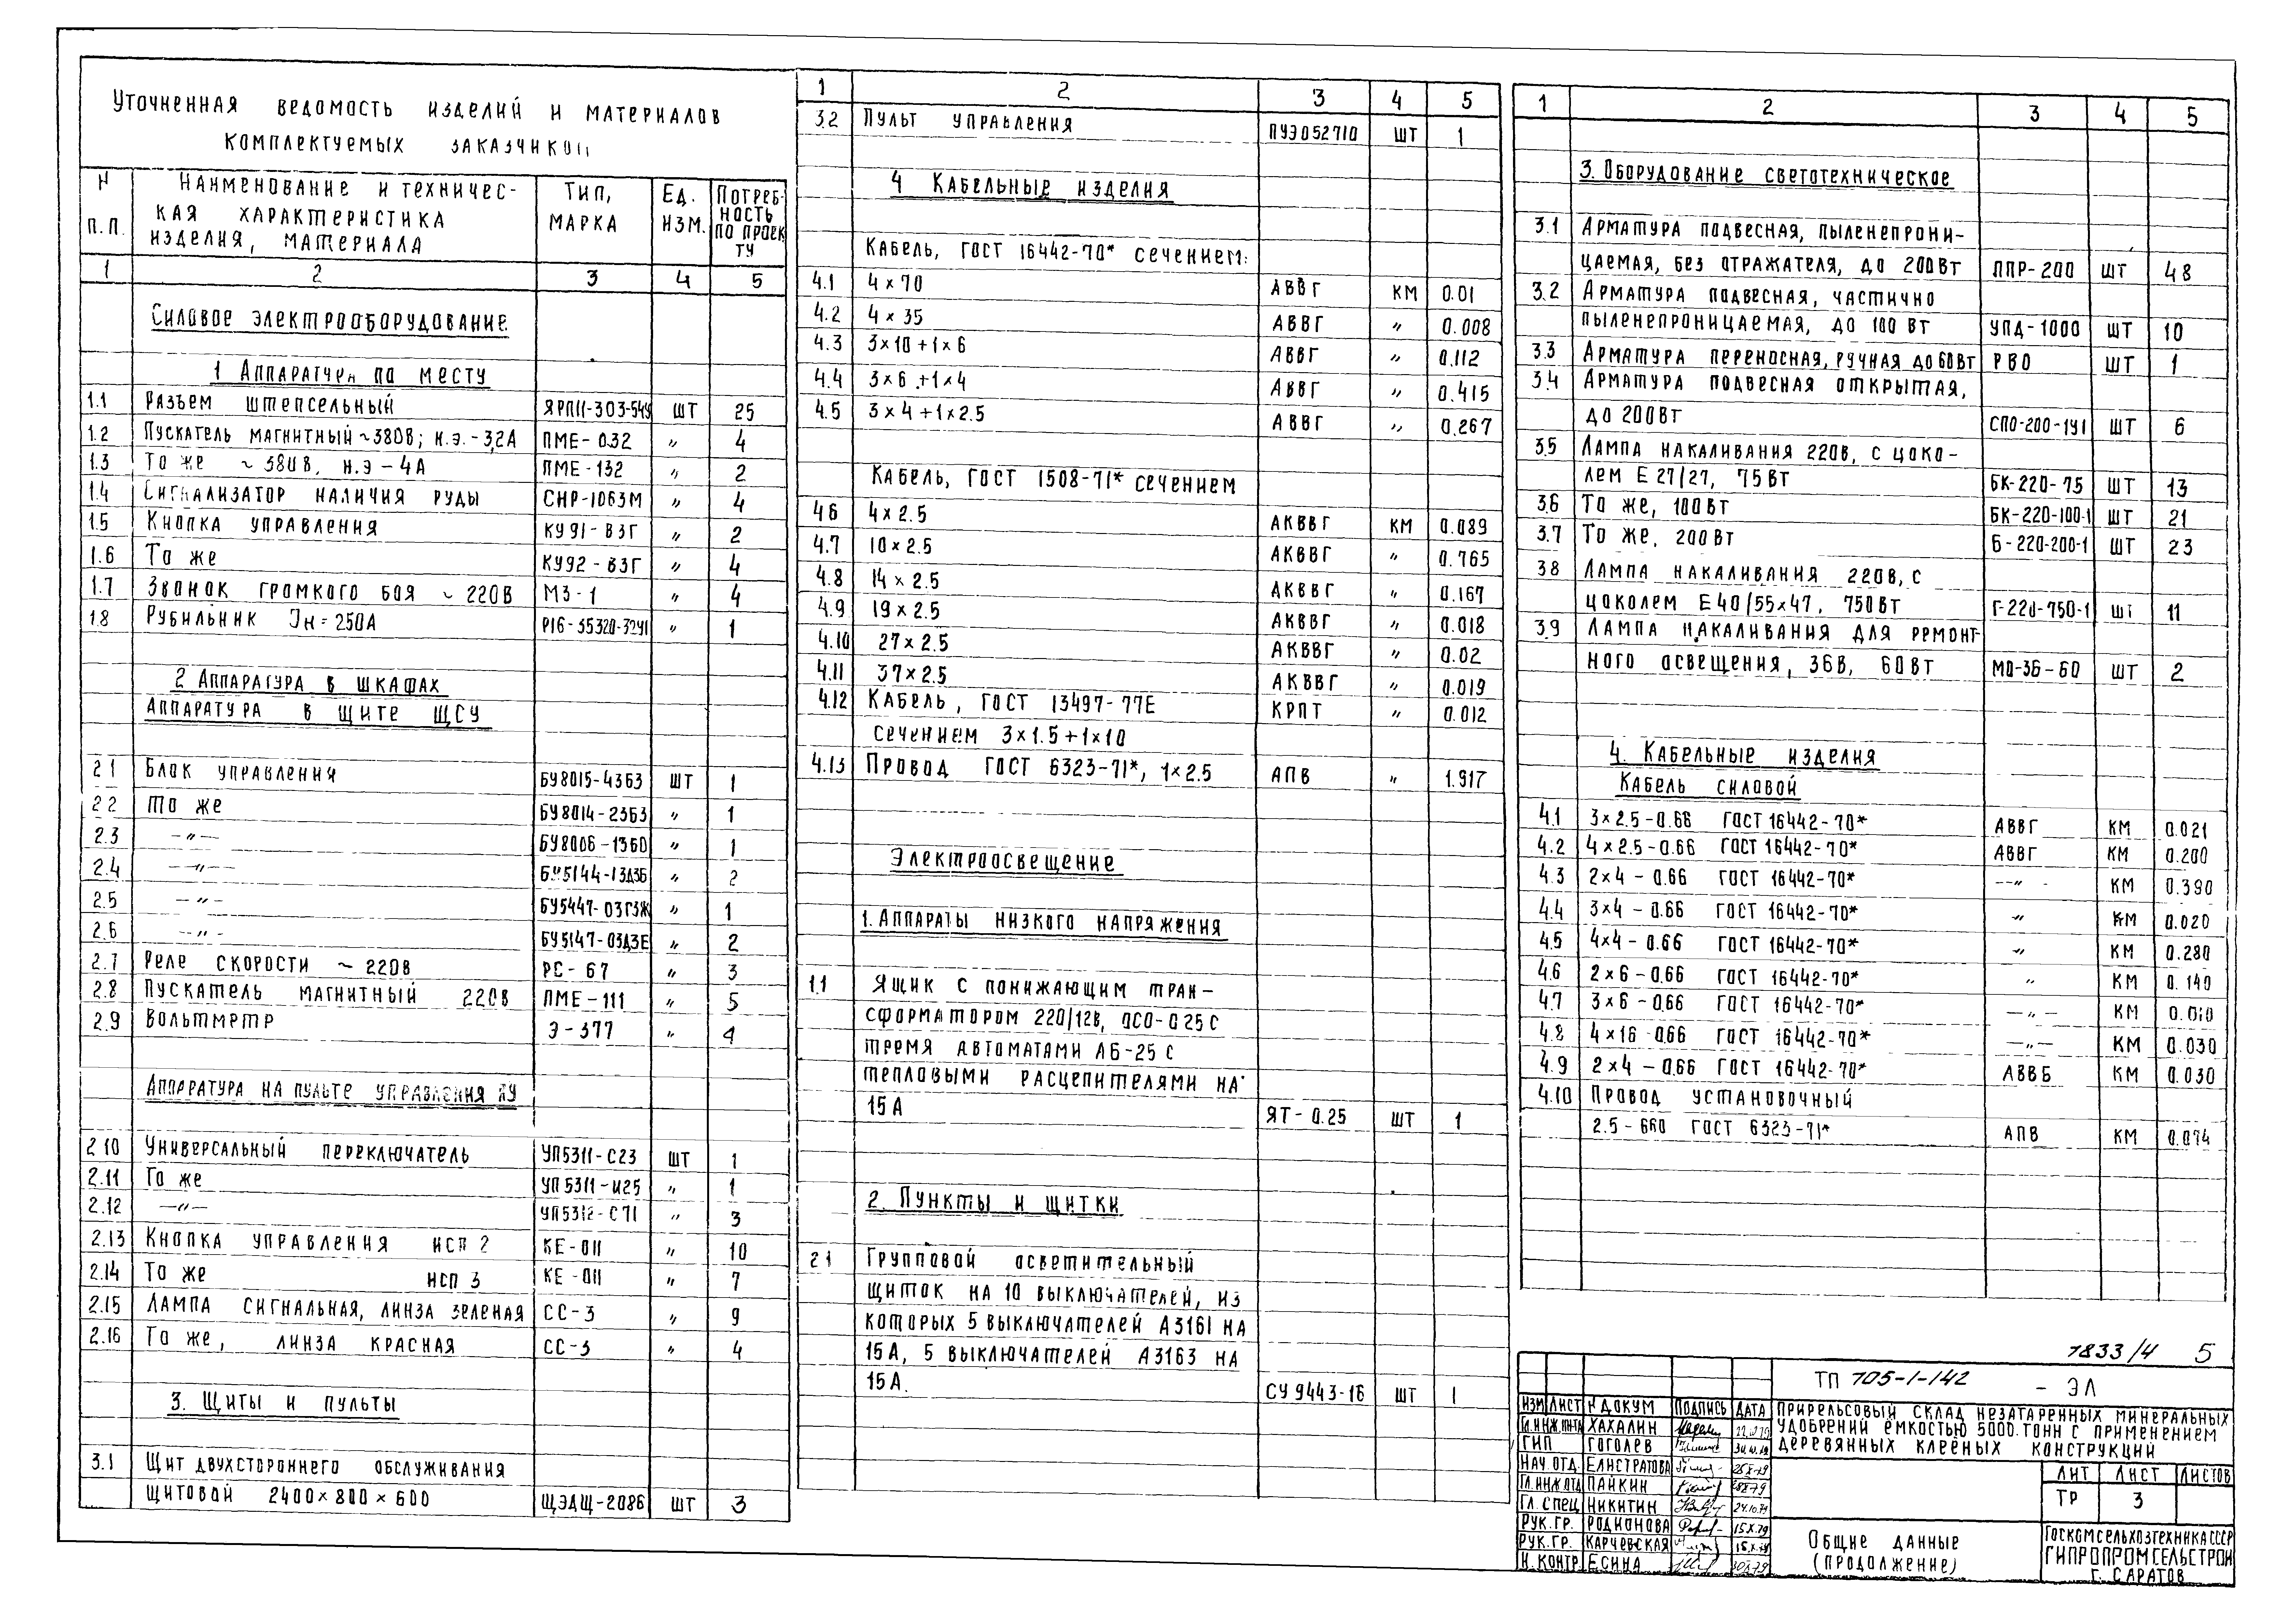 Уточненная ведомость изделий и материалов
комплектуемых заказчиком
N п.п. Наименование и техничес- Тип, Ед. Потреб-
кая характеристика марка изм. ность
изделия, материала по проек
ту
1 2 3 4 5
Силовое электрооборудование
1 Аппаратура по месту
1.1 Разъем штепсельный ЯРП11-303-54У шт 25
1.2 Пускатель магнитный ~380В; н.э.-3,2А ПМЕ-032 〃 4
1.3 То же ~380В, н.э-4А ПМЕ-132 〃 2
1.4 Сигнализатор наличия руды СНР-1063М 〃 4
1.5 Кнопка управления КУ91-ВЗГ 〃 2
1.6 То же КУ92-ВЗГ 〃 4
1.7 Звонок громкого боя ~220В МЗ-1 〃 4
1.8 Рубильник Iн=250А Р16-35320-32У1 〃 1
2 Аппаратура в шкафах
Аппаратура в щите ЩСУ
2.1 Блок управления БУ8015-43Б3 шт 1
2.2 То же БУ8014-23Б3 〃 1
2.3 —〃— БУ8006-13Б0 〃 1
2.4 —〃— БУ5144-13Д3Б 〃 2
2.5 —〃— БУ5447-03Г3Ж 〃 1
2.6 —〃— БУ5147-03Д3Е 〃 2
2.7 Реле скорости ~220В РС-67 〃 3
2.8 Пускатель магнитный 220В ПМЕ-111 〃 5
2.9 Вольтметр Э-377 〃 4
Аппаратура на пульте управления ПУ
2.10 Универсальный переключатель УП5311-С23 шт 1
2.11 То же УП5311-И25 〃 1
2.12 —〃— УП5312-С71 〃 3
2.13 Кнопка управления исп 2 КЕ-011 〃 10
2.14 То же исп 3 КЕ-011 〃 7
2.15 Лампа сигнальная, линза зеленая СС-3 〃 9
2.16 То же, линза красная СС-3 〃 4
3. Щиты и пульты
3.1 Щит двухстороннего обслуживания
щитовой 2400×800×600 ЩЭДЩ-2086 шт 3
1 2 3 4 5
3.2 Пульт управления ПУЭ052710 шт 1
4 Кабельные изделия
Кабель, ГОСТ 16442-70* сечением:
4.1 4×70 АВВГ км 0.01
4.2 4×35 АВВГ 〃 0.008
4.3 3×10+1×6 АВВГ 〃 0.112
4.4 3×6+1×4 АВВГ 〃 0.415
4.5 3×4+1×2.5 АВВГ 〃 0.267
Кабель, ГОСТ 1508-71* сечением
4.6 4×2.5 АКВВГ км 0.089
4.7 10×2.5 АКВВГ 〃 0.765
4.8 14×2.5 АКВВГ 〃 0.167
4.9 19×2.5 АКВВГ 〃 0.018
4.10 27×2.5 АКВВГ 〃 0.02
4.11 37×2.5 АКВВГ 〃 0.019
4.12 Кабель, ГОСТ 13497-77Е КРПТ 〃 0.012
сечением 3×1.5+1×10
4.13 Провод ГОСТ 6323-71*, 1×2.5 АПВ 〃 1.917
Электроосвещение
1. Аппараты низкого напряжения
1.1 Ящик с понижающим тран-
сформатором 220/12В, ОСО-0.25 с
тремя автоматами АБ-25 с
тепловыми расцепителями на
15А ЯТ-0.25 шт 1
2. Пункты и щитки
2.1 Групповой осветительный
щиток на 10 выключателей, из
которых 5 выключателей А3161 на
15А, 5 выключателей А3163 на
15А. СУ9443-16 шт 1
1 2 3 4 5
3. Оборудование светотехническое
3.1 Арматура подвесная, пыленепрони-
цаемая, без отражателя, до 200Вт ППР-200 шт 48
3.2 Арматура подвесная, частично
пыленепроницаемая, до 100 Вт УПД-1000 шт 10
3.3 Арматура переносная, ручная до 60Вт РВО шт 1
3.4 Арматура подвесная открытая,
до 200Вт СПО-200-1У1 шт 6
3.5 Лампа накаливания 220В, с цоко-
лем Е27/27, 75Вт БК-220-75 шт 13
3.6 То же, 100Вт БК-220-100-1 шт 21
3.7 То же, 200Вт Б-220-200-1 шт 23
3.8 Лампа накаливания 220В, с
цоколем Е40/55×47, 750Вт Г-220-750-1 шт 11
3.9 Лампа накаливания для ремонт-
ного освещения, 36В, 60Вт МО-36-60 шт 2
4. Кабельные изделия
Кабель силовой
4.1 3×2.5-0.66 ГОСТ 16442-70* АВВГ км 0.021
4.2 4×2.5-0.66 ГОСТ 16442-70* АВВГ км 0.200
4.3 2×4-0.66 ГОСТ 16442-70* —〃— км 0.390
4.4 3×4-0.66 ГОСТ 16442-70* 〃 км 0.020
4.5 4×4-0.66 ГОСТ 16442-70* 〃 км 0.280
4.6 2×6-0.66 ГОСТ 16442-70* 〃 км 0.140
4.7 3×6-0.66 ГОСТ 16442-70* —〃— км 0.010
4.8 4×16-0.66 ГОСТ 16442-70* —〃— км 0.030
4.9 2×4-0.66 ГОСТ 16442-70* АВВБ км 0.030
4.10 Провод установочный
2.5-660 ГОСТ 6323-71* АПВ км 0.074
1833/4 5
ТП 705-1-142 - ЭЛ
Изм Лист N докум Подпись Дата
Прирельсовый склад незатаренных минеральных
удобрений ёмкостью 5000 тонн с применением
деревянных клееных конструкций
Гл.инж.пр-та Хахалин
ГИП Гоголев
Нач.отд. Елистратова
Гл.инж.отд Пайкин
Гл.спец Никитин 24.10.79
Рук.гр. Родионова 15.X.79
Рук.гр. Карчевская 15.X.79
Н.контр. Есина
Лит Лист Листов
ТР 3
Общие данные
(продолжение)
Госкомсельхозтехника СССР
Гипропромсельстрой
г. Саратов